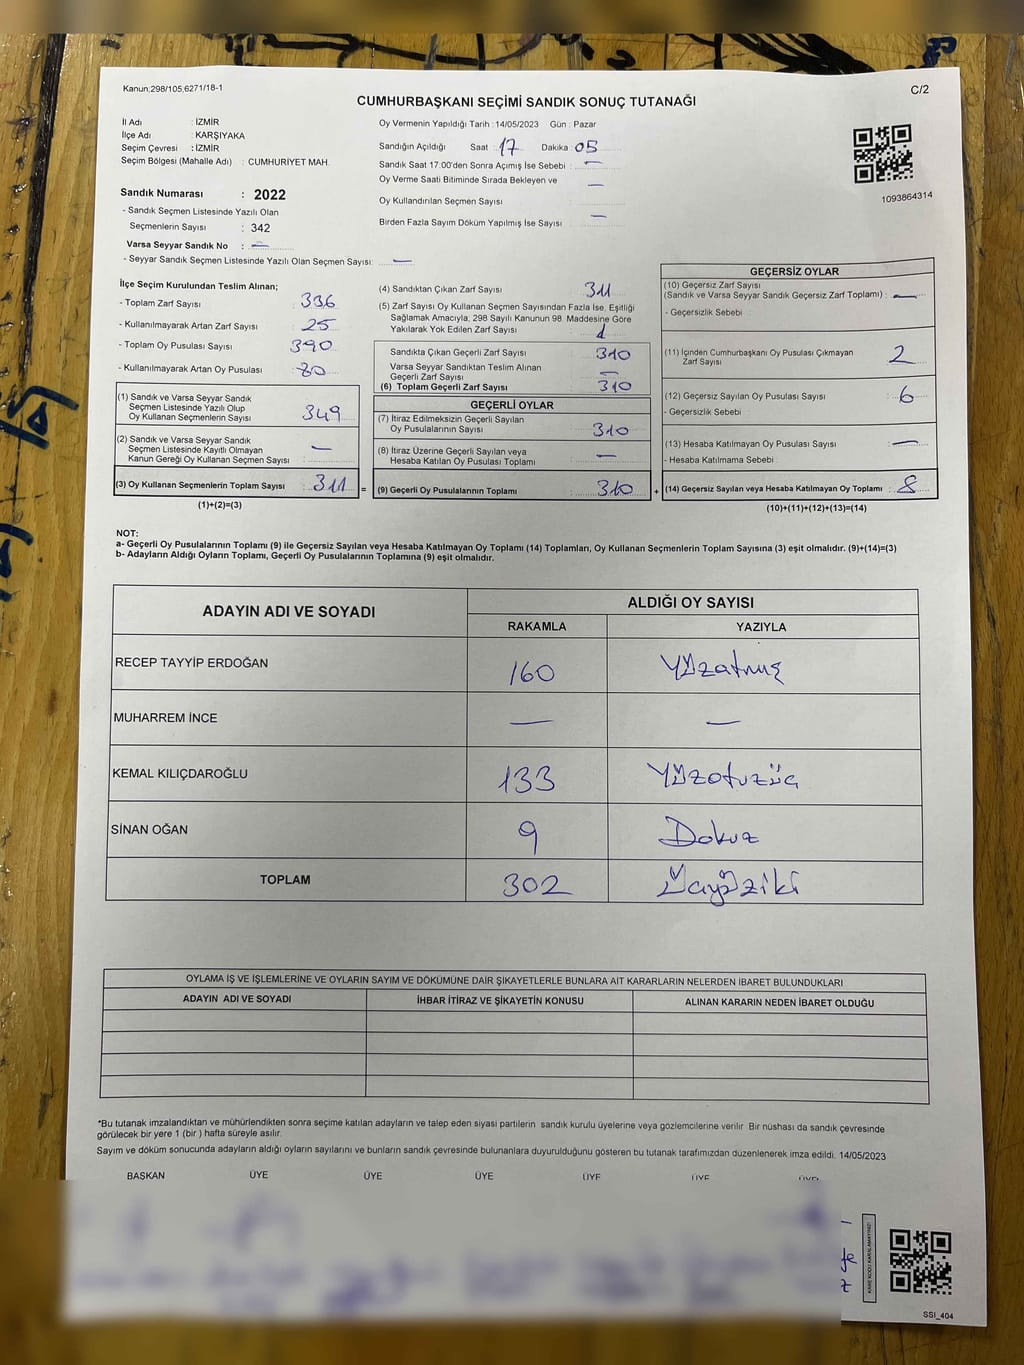 Kanun;298/105,6271/18-1
C/2
CUMHURBAŞKANI SEÇİMİ SANDIK SONUÇ TUTANAĞI
İl Adı : İZMİR
İlçe Adı : KARŞIYAKA
Seçim Çevresi : İZMİR
Seçim Bölgesi (Mahalle Adı) : CUMHURİYET MAH.
Oy Vermenin Yapıldığı Tarih : 14/05/2023 Gün : Pazar
Sandığın Açıldığı Saat 17 Dakika : 05
Sandık Saat 17.00'den Sonra Açımış İse Sebebi : —
Oy Verme Saati Bitiminde Sırada Bekleyen ve —
Oy Kullandırılan Seçmen Sayısı
Birden Fazla Sayım Döküm Yapılmış İse Sayısı : —
1093864314
Sandık Numarası : 2022
- Sandık Seçmen Listesinde Yazılı Olan
Seçmenlerin Sayısı : 342
Varsa Seyyar Sandık No : —
- Seyyar Sandık Seçmen Listesinde Yazılı Olan Seçmen Sayısı: —
İlçe Seçim Kurulundan Teslim Alınan;
- Toplam Zarf Sayısı : 336
- Kullanılmayarak Artan Zarf Sayısı : 25
- Toplam Oy Pusulası Sayısı : 390
- Kullanılmayarak Artan Oy Pusulası : 80
(1) Sandık ve Varsa Seyyar Sandık
Seçmen Listesinde Yazılı Olup
Oy Kullanan Seçmenlerin Sayısı : 349
(2) Sandık ve Varsa Seyyar Sandık
Seçmen Listesinde Kayıtlı Olmayan
Kanun Gereği Oy Kullanan Seçmen Sayısı : —
(3) Oy Kullanan Seçmenlerin Toplam Sayısı : 311 =
(1)+(2)=(3)
(4) Sandıktan Çıkan Zarf Sayısı : 311
(5) Zarf Sayısı Oy Kullanan Seçmen Sayısından Fazla İse, Eşitliği
Sağlamak Amacıyla; 298 Sayılı Kanunun 98. Maddesine Göre
Yakılarak Yok Edilen Zarf Sayısı : 1
Sandıkta Çıkan Geçerli Zarf Sayısı : 310
Varsa Seyyar Sandıktan Teslim Alınan
Geçerli Zarf Sayısı : —
(6) Toplam Geçerli Zarf Sayısı : 310
GEÇERLİ OYLAR
(7) İtiraz Edilmeksizin Geçerli Sayılan
Oy Pusulalarının Sayısı : 310
(8) İtiraz Üzerine Geçerli Sayılan veya
Hesaba Katılan Oy Pusulası Toplamı : —
(9) Geçerli Oy Pusulalarının Toplamı : 310 +
GEÇERSİZ OYLAR
(10) Geçersiz Zarf Sayısı
(Sandık ve Varsa Seyyar Sandık Geçersiz Zarf Toplamı) : —
- Geçersizlik Sebebi
(11) İçinden Cumhurbaşkanı Oy Pusulası Çıkmayan
Zarf Sayısı : 2
(12) Geçersiz Sayılan Oy Pusulası Sayısı : 6
- Geçersizlik Sebebi
(13) Hesaba Katılmayan Oy Pusulası Sayısı : —
- Hesaba Katılmama Sebebi
(14) Geçersiz Sayılan veya Hesaba Katılmayan Oy Toplamı : 8
(10)+(11)+(12)+(13)=(14)
NOT:
a- Geçerli Oy Pusulalarının Toplamı (9) ile Geçersiz Sayılan veya Hesaba Katılmayan Oy Toplamı (14) Toplamları, Oy Kullanan Seçmenlerin Toplam Sayısına (3) eşit olmalıdır. (9)+(14)=(3)
b- Adayların Aldığı Oyların Toplamı, Geçerli Oy Pusulalarının Toplamına (9) eşit olmalıdır.
ADAYIN ADI VE SOYADI ALDIĞI OY SAYISI
RAKAMLA YAZIYLA
RECEP TAYYİP ERDOĞAN 160 Yüzatmış
MUHARREM İNCE — —
KEMAL KILIÇDAROĞLU 133 Yüzotuzüç
SİNAN OĞAN 9 Dokuz
TOPLAM 302 Üçyüziki
OYLAMA İŞ VE İŞLEMLERİNE VE OYLARIN SAYIM VE DÖKÜMÜNE DAİR ŞİKAYETLERLE BUNLARA AİT KARARLARIN NELERDEN İBARET BULUNDUKLARI
ADAYIN ADI VE SOYADI İHBAR İTİRAZ VE ŞİKAYETİN KONUSU ALINAN KARARIN NEDEN İBARET OLDUĞU
*Bu tutanak imzalandıktan ve mühürlendikten sonra seçime katılan adayların ve talep eden siyasi partilerin sandık kurulu üyelerine veya gözlemcilerine verilir. Bir nüshası da sandık çevresinde
görülecek bir yere 1 (bir ) hafta süreyle asılır.
Sayım ve döküm sonucunda adayların aldığı oyların sayılarını ve bunların sandık çevresinde bulunanlara duyurulduğunu gösteren bu tutanak tarafımızdan düzenlenerek imza edildi. 14/05/2023
BAŞKAN ÜYE ÜYE ÜYE ÜYE ÜYE ÜYE
SSI_404